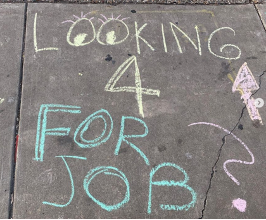 LOOKING
4
FOR
JOB